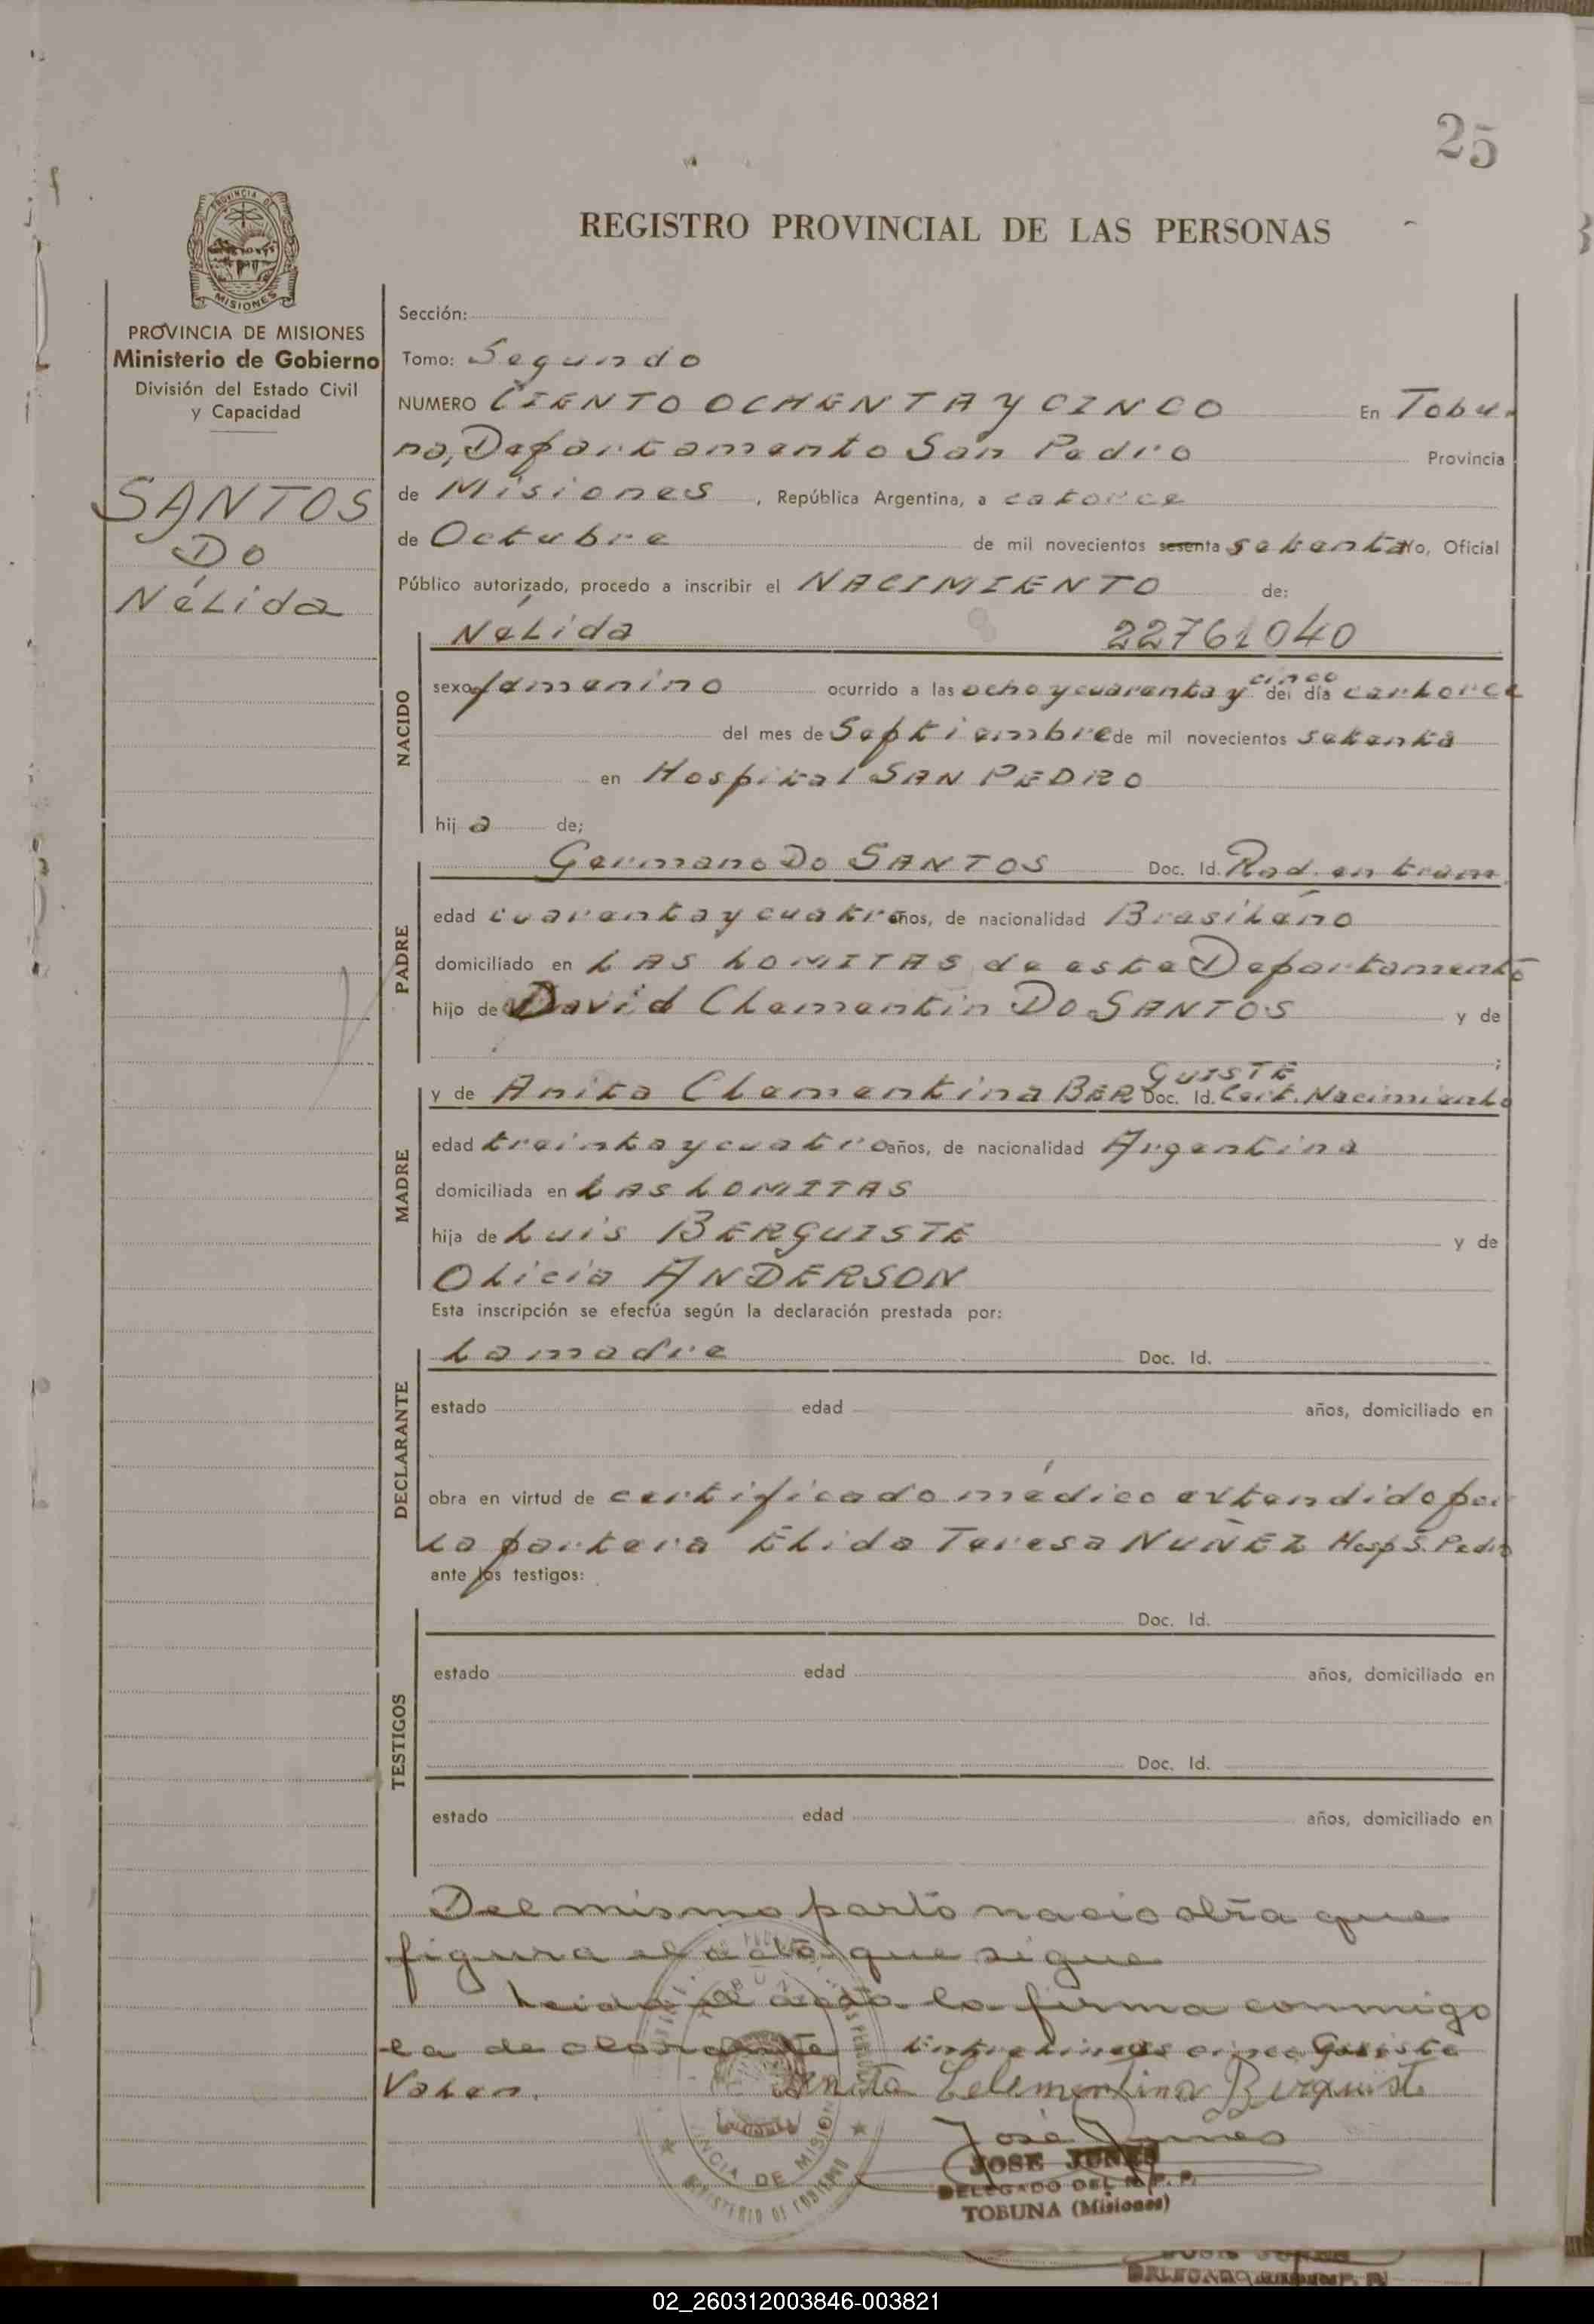 25
REGISTRO PROVINCIAL DE LAS PERSONAS
PROVINCIA DE
MISIONES
PROVINCIA DE MISIONES
Ministerio de Gobierno
División del Estado Civil
y Capacidad
SANTOS
DO
Nélida
Sección:
Tomo: Segundo
NUMERO CIENTO OCHENTA Y CINCO En Tobu-
na, Departamento San Pedro Provincia
de Misiones, República Argentina, a catorce
de Octubre de mil novecientos sesenta setenta Yo, Oficial
Público autorizado, procedo a inscribir el NACIMIENTO de:
NACIDO
Nélida 22761040
sexo femenino ocurrido a las ocho y cuarenta y cinco del día cartorce
del mes de Septiembre de mil novecientos setenta
en Hospital SAN PEDRO
hija de;
PADRE
Germano Do SANTOS Doc. Id. Rad. en tram.
edad cuarenta y cuatro años, de nacionalidad Brasileño
domiciliado en LAS LOMITAS de este Departamento
hijo de David Clementin DO SANTOS y de
;
MADRE
y de Anita Clementina BERGUISTE Doc. Id. Cert. Nacimiento
edad treinta y cuatro años, de nacionalidad Argentina
domiciliada en LAS LOMITAS
hija de Luis BERGUISTE y de
Olicia ANDERSON
Esta inscripción se efectúa según la declaración prestada por:
DECLARANTE
La madre Doc. Id.
estado edad años, domiciliado en
obra en virtud de certificado médico extendido por
la partera Elida Teresa NUÑEZ Hosp S. Pedro
ante los testigos:
TESTIGOS
Doc. Id.
estado edad años, domiciliado en
Doc. Id.
estado edad años, domiciliado en
Del mismo parto nacio otra que
figura el acta que sigue
Leida el acta la firma conmigo
la declarante Entrelineas cinco Guiste
Valen. Anita Celementina Berquist
José Junes
JOSE JUNES
DELEGADO DEL R. P. P.
TOBUNA (Misiones)
INCIA DE MISION
MINISTERIO DE GOBIERNO
02_260312003846-003821